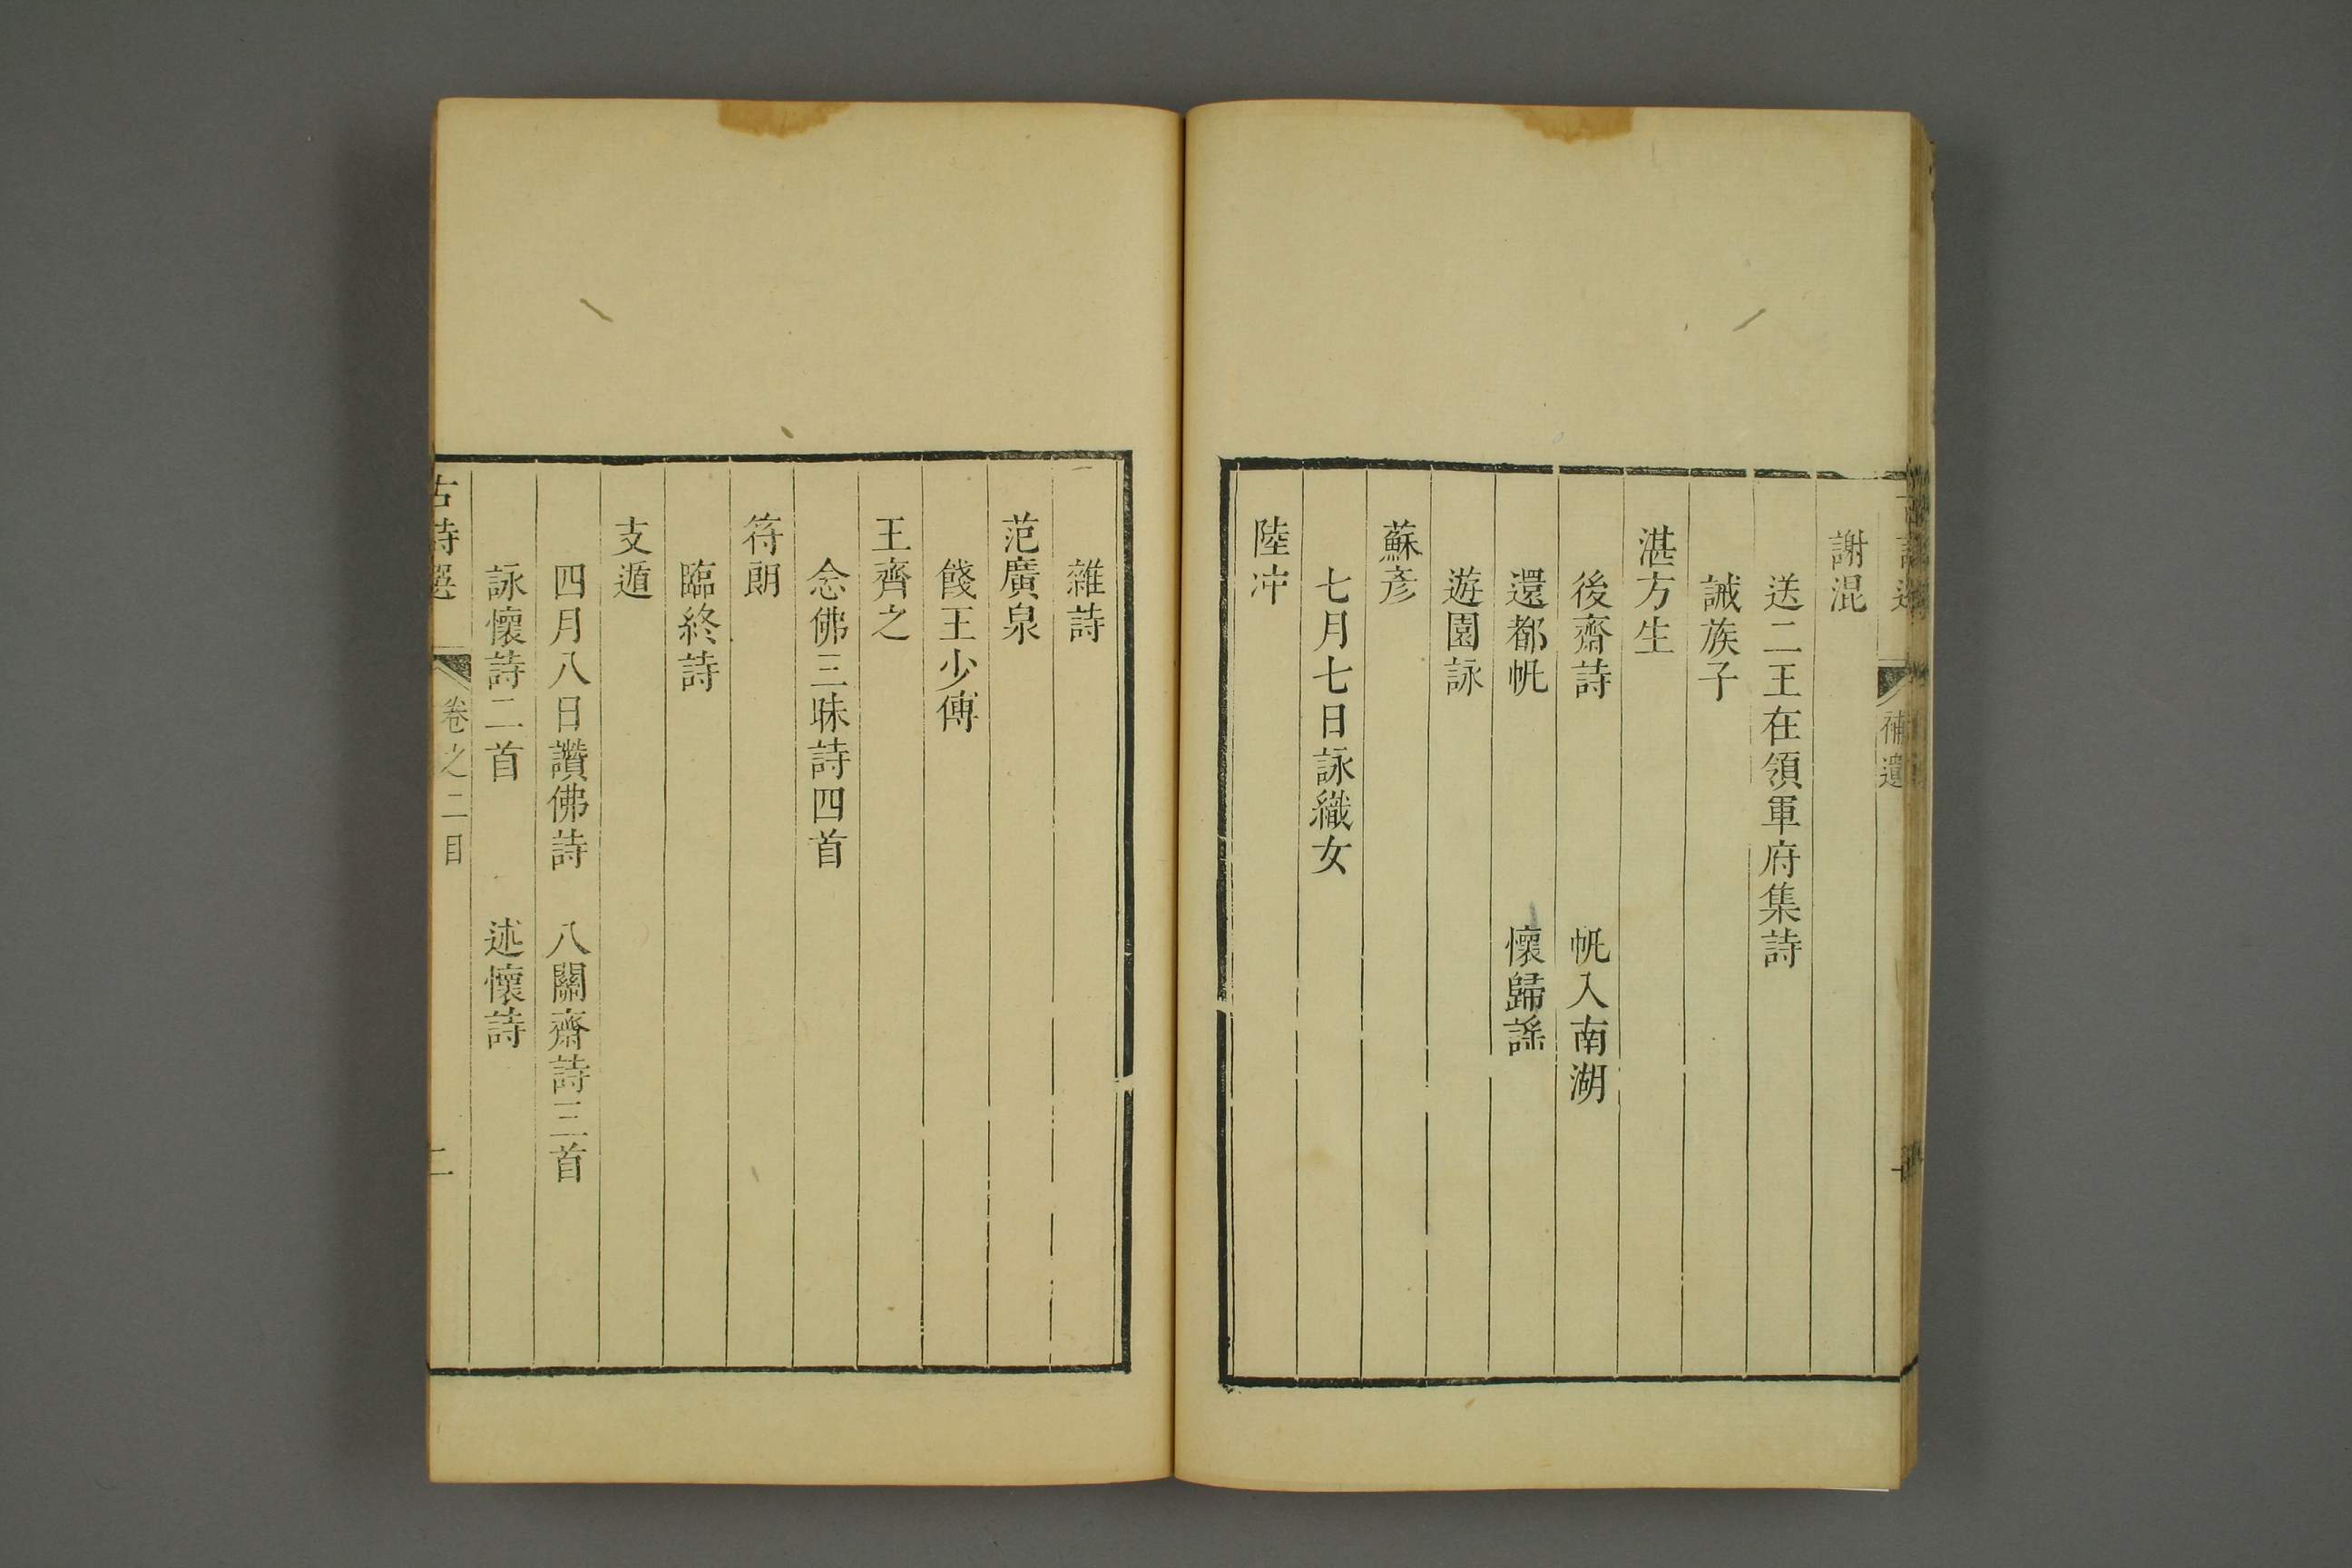 補遺
謝混
送二王在領軍府集詩
誡族子
湛方生
後齋詩　帆入南湖
還都帆　懷歸謠
遊園詠
蘇彥
七月七日詠織女
陸冲
雜詩
范廣泉
餞王少傅
王齊之
念佛三昧詩四首
符朗
臨終詩
支遁
四月八日讚佛詩　八關齋詩三首
詠懷詩二首　述懷詩
古詩選　卷之二目　二